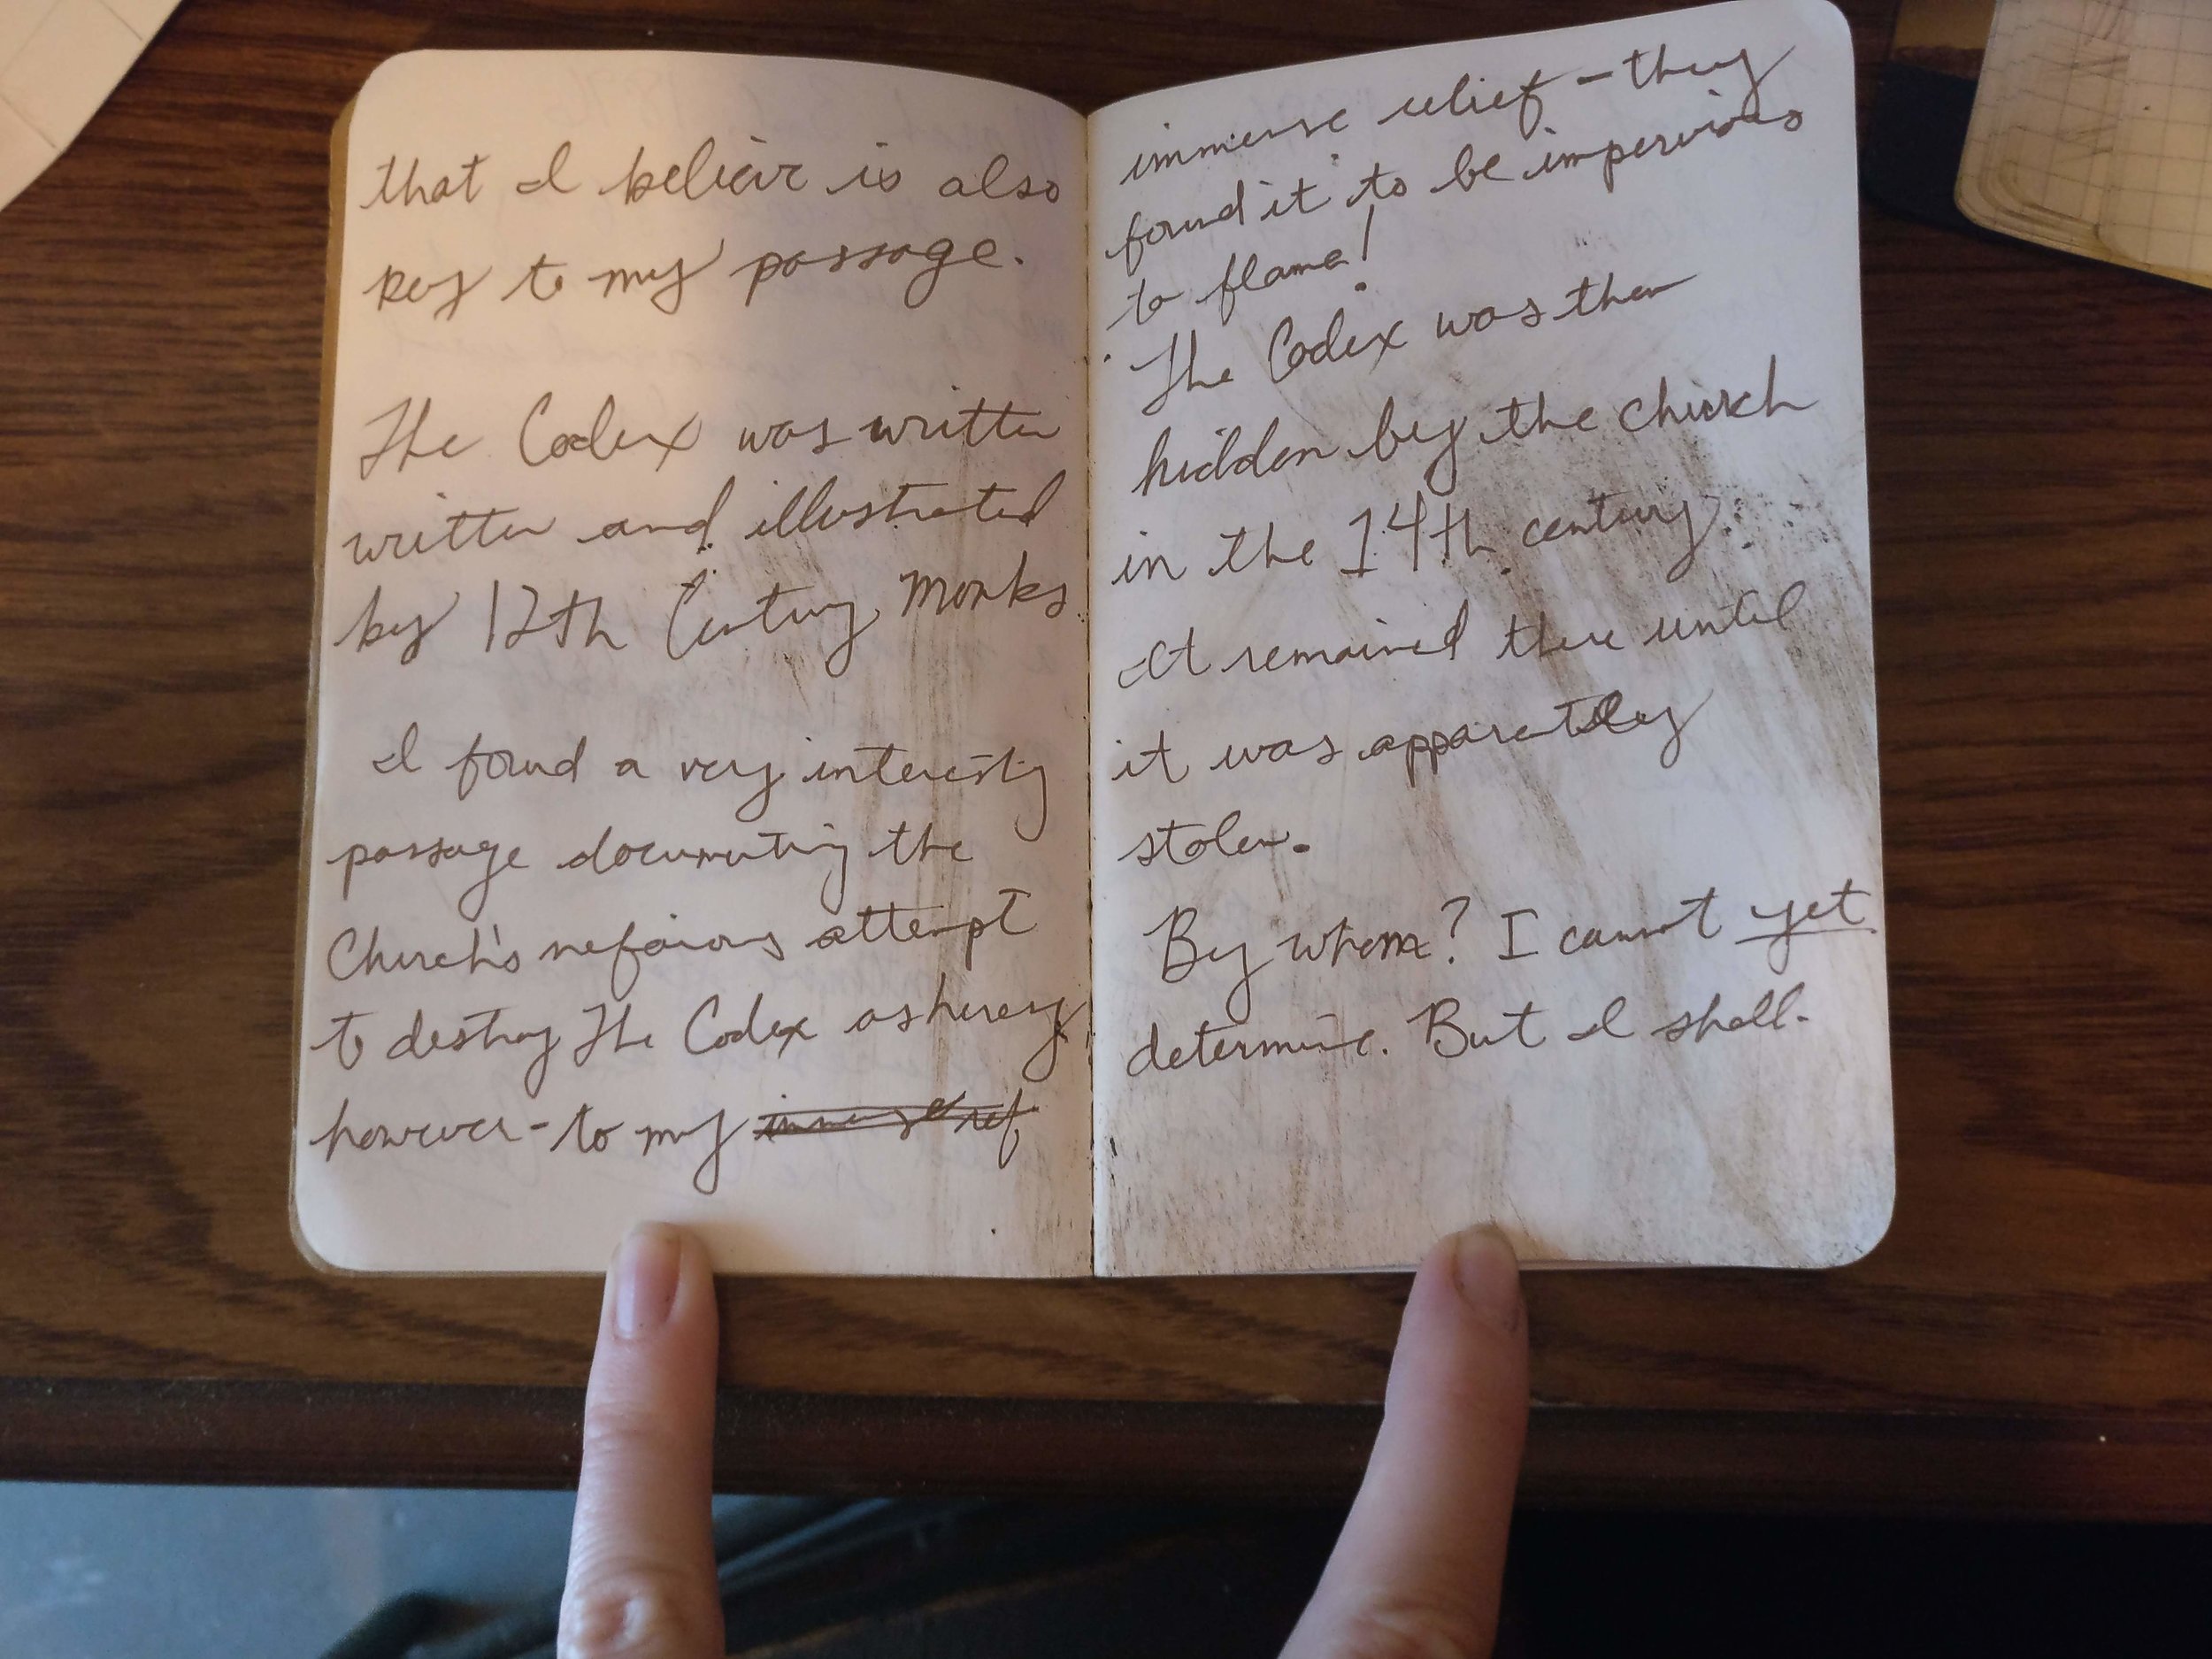 that I believe is also
key to my passage.
The Codex was written
written and illustrated
by 12th Century Monks
I found a very interesting
passage documenting the
Church's nefarious attempt
to destroy The Codex as heresy
however - to my immense ref
immense relief - they
found it to be impervious
to flame!
The Codex was then
hidden by the church
in the 14th century.
It remained there until
it was apparently
stolen.
By whom? I cannot yet
determine. But I shall.